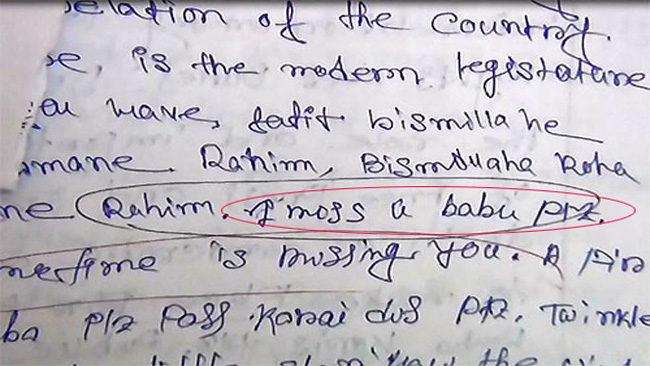 elation of the country.
se, is the modern legistature
ou wave, fatit bismilla he
mane. Rahim, Bismduaha Roha
ne Rahim. I moss u babu Plz.
netime is mussing you. A
ba Plz Pass Kanai das Plz. Twinkle
the